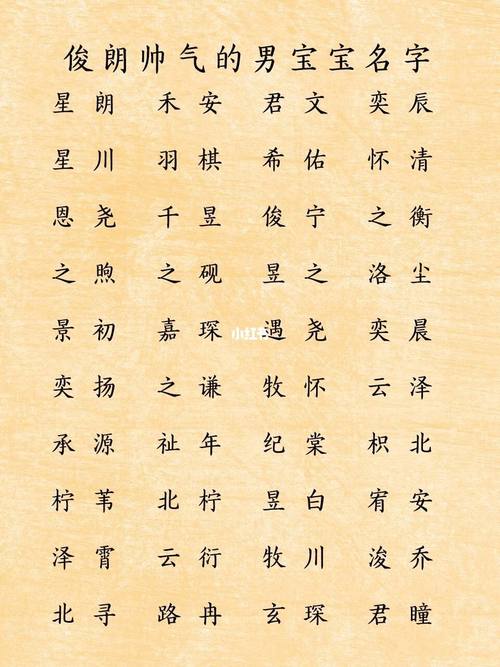 俊朗帅气的男宝宝名字
星朗 禾安 君文 奕辰
星川 羽棋 希佑 怀清
恩尧 千昱 俊宁 之衡
之煦 之砚 昱之 洛尘
景初 嘉琛 遇尧 奕晨
小红书
奕扬 之谦 牧怀 云泽
承源 祉年 纪棠 枳北
柠苇 北柠 昱白 宥安
泽霄 云衍 牧川 浚乔
北寻 路冉 玄琛 君瞳